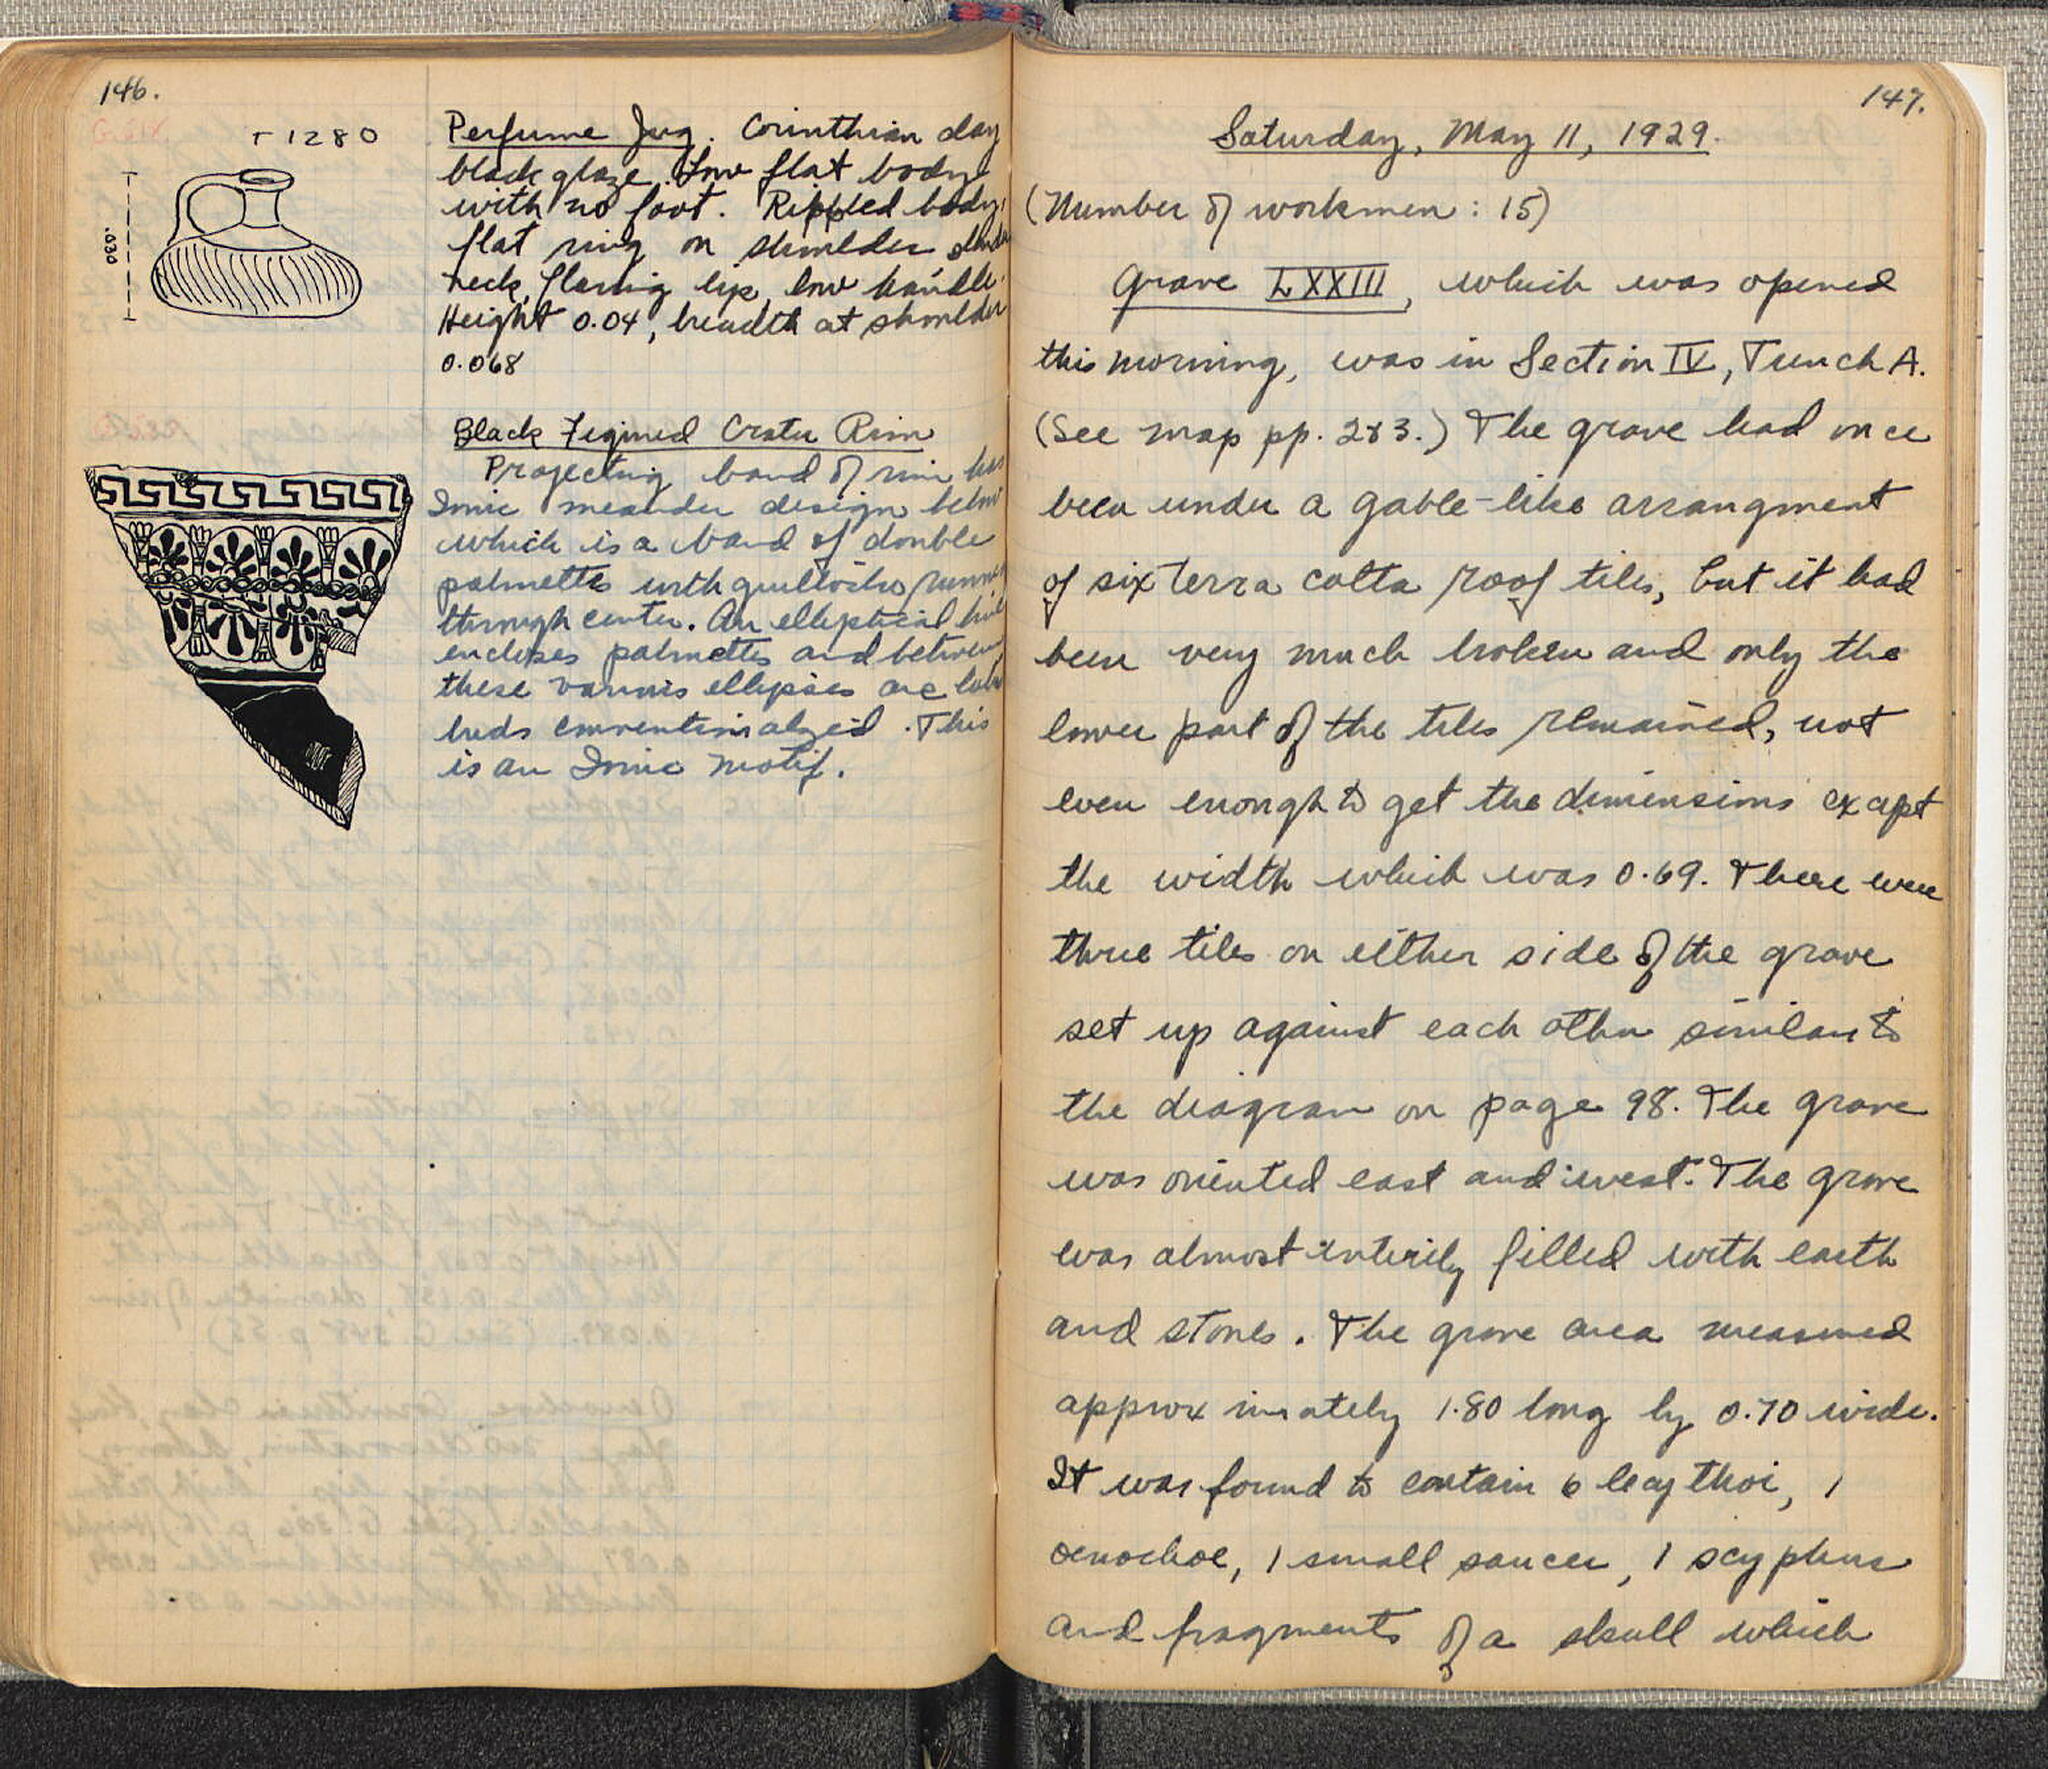 146.
T 1280
.030
Perfume Jug. Corinthian clay
black glaze. Low flat body
with no foot. Rippled body,
flat ring on shoulder slender
neck, flaring lip, low handle.
Height 0.04, breadth at shoulder
0.068
Black Figured Crater Rim
Projecting band of rim has
Ionic meander design below
which is a band of double
palmettes with guilloche
through center. An elliptical line
encloses palmettes and between
these various ellipses are
buds conventionalized. This
is an Ionic motif.
147.
Saturday, May 11, 1929.
(Number of workmen: 15)
Grave LXXIII, which was opened
this morning, was in Section IV, Trench A.
(See map pp. 2&3.) The grave had once
been under a gable-like arrangment
of six terra cotta roof tiles, but it had
been very much broken and only the
lower part of the tiles remained, not
even enough to get the dimensions except
the width which was 0.69. There were
three tiles on either side of the grave
set up against each other similar to
the diagram on page 98. The grave
was oriented east and west. The grave
was almost entirely filled with earth
and stones. The grave area measured
approximately 1.80 long by 0.70 wide.
It was found to contain 6 lecythoi, 1
oenochoe, 1 small saucer, 1 scyphus
and fragments of a skull which